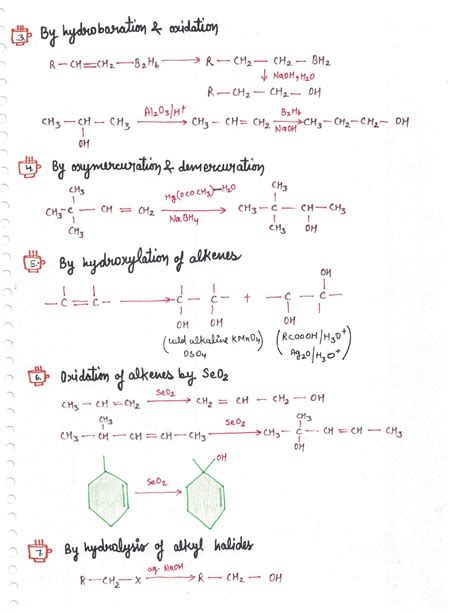 3. By hydroboration & oxidation
R — CH = CH₂ — B₂H₆ → R — CH₂ — CH₂ — BH₂
↓ NaOH, H₂O
R — CH₂ — CH₂ — OH
CH₃ — CH — CH₃ Al₂O₃/H⁺ → CH₃ — CH = CH₂ B₂H₆ NaOH → CH₃ — CH₂ — CH₂ — OH
OH
4. By oxymercuration & demercuration
CH₃ CH₃
CH₃ — C — CH = CH₂ Hg(OCOCH₃)—H₂O NaBH₄ → CH₃ — C — CH — CH₃
CH₃ CH₃ OH
5. By hydroxylation of alkenes
OH
— C = C — → — C — C — + — C — C —
OH OH OH
(cold alkaline KMnO₄) (RCOOOH/H₃O⁺)
OSO₄ Ag₂O/H₃O⁺
6. Oxidation of alkenes by SeO₂
CH₃ — CH = CH₂ SeO₂ → CH₂ = CH — CH₂ — OH
CH₃ CH₃
CH₃ — CH — CH = CH — CH₃ SeO₂ → CH₃ — C — CH = CH — CH₃
OH
SeO₂ → OH
7. By hydralysis of alkyl halides
R — CH₂ — X aq NaOH → R — CH₂ — OH